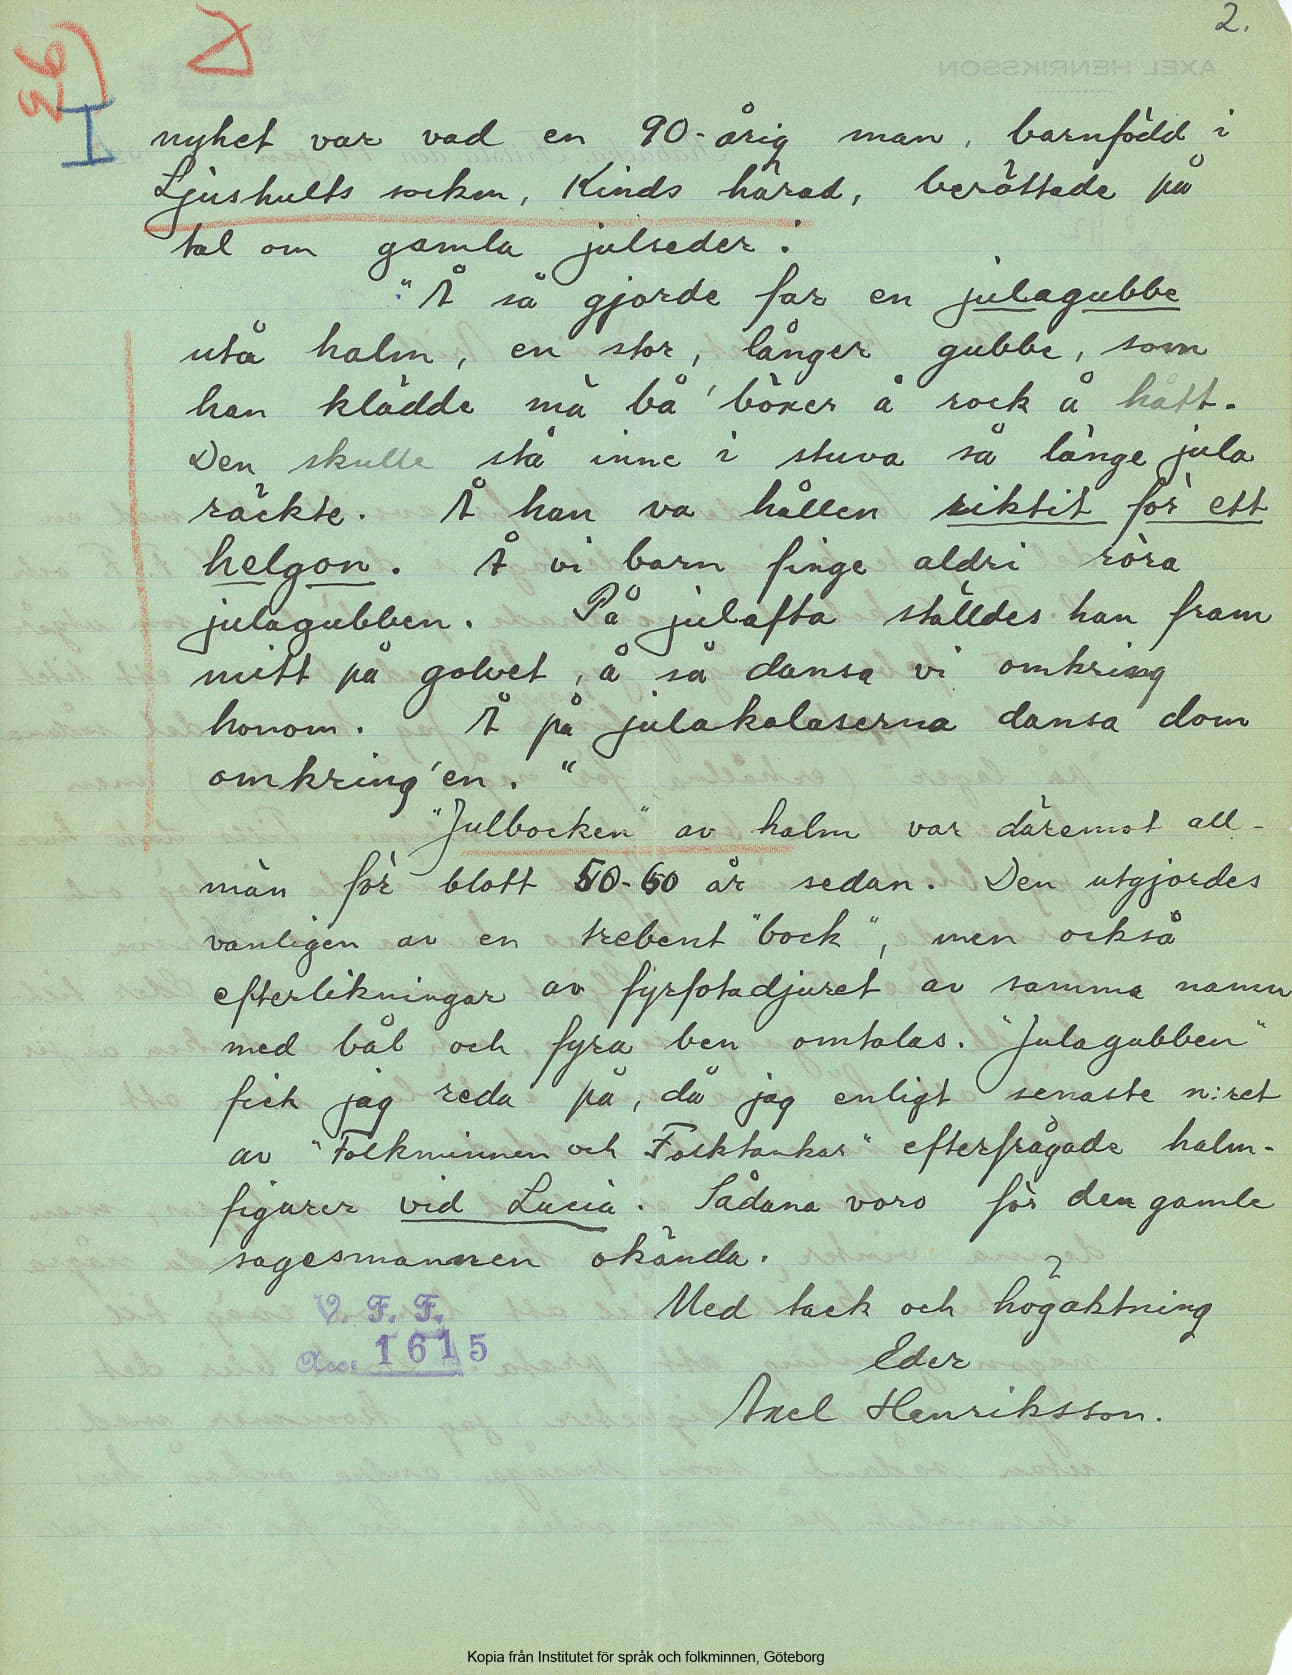 2.
26)
I
nyhet var vad en 90-årig man, barnfödd i
Ljushults socken, Kinds härad, berättade på
tal om gamla julseder:
"Å så gjorde far en julagubbe
utå halm, en stor, långer gubbe, som
han klädde mä bå' böxer å rock å hått.
Den skulle stå inne i stuva så länge jula
räckte. Å han va hållen riktit för ett
helgon. Å vi barn finge aldri röra
julagubben. På julafta ställdes han fram
mitt på golvet, å så dansa vi omkring
honom. Å på julakalaserna dansa dom
omkring'en."
"Julbocken" av halm var däremot all-
män för blott 50-60 år sedan. Den utgjordes
vanligen av en trebent "bock", men också
efterlikningar av fyrfotadjuret av samma namn
med bål och fyra ben omtalas. "Julagubben"
fick jag reda på, då jag enligt senaste n:ret
av "Folkminnen och Folktankar" efterfrågade halm-
figurer vid Lucia. Sådana voro för den gamle
sagesmannen okända.
Med tack och högaktning
Eder
Axel Henriksson.
V. F. F.
Acc. 1615
Kopia från Institutet för språk och folkminnen, Göteborg